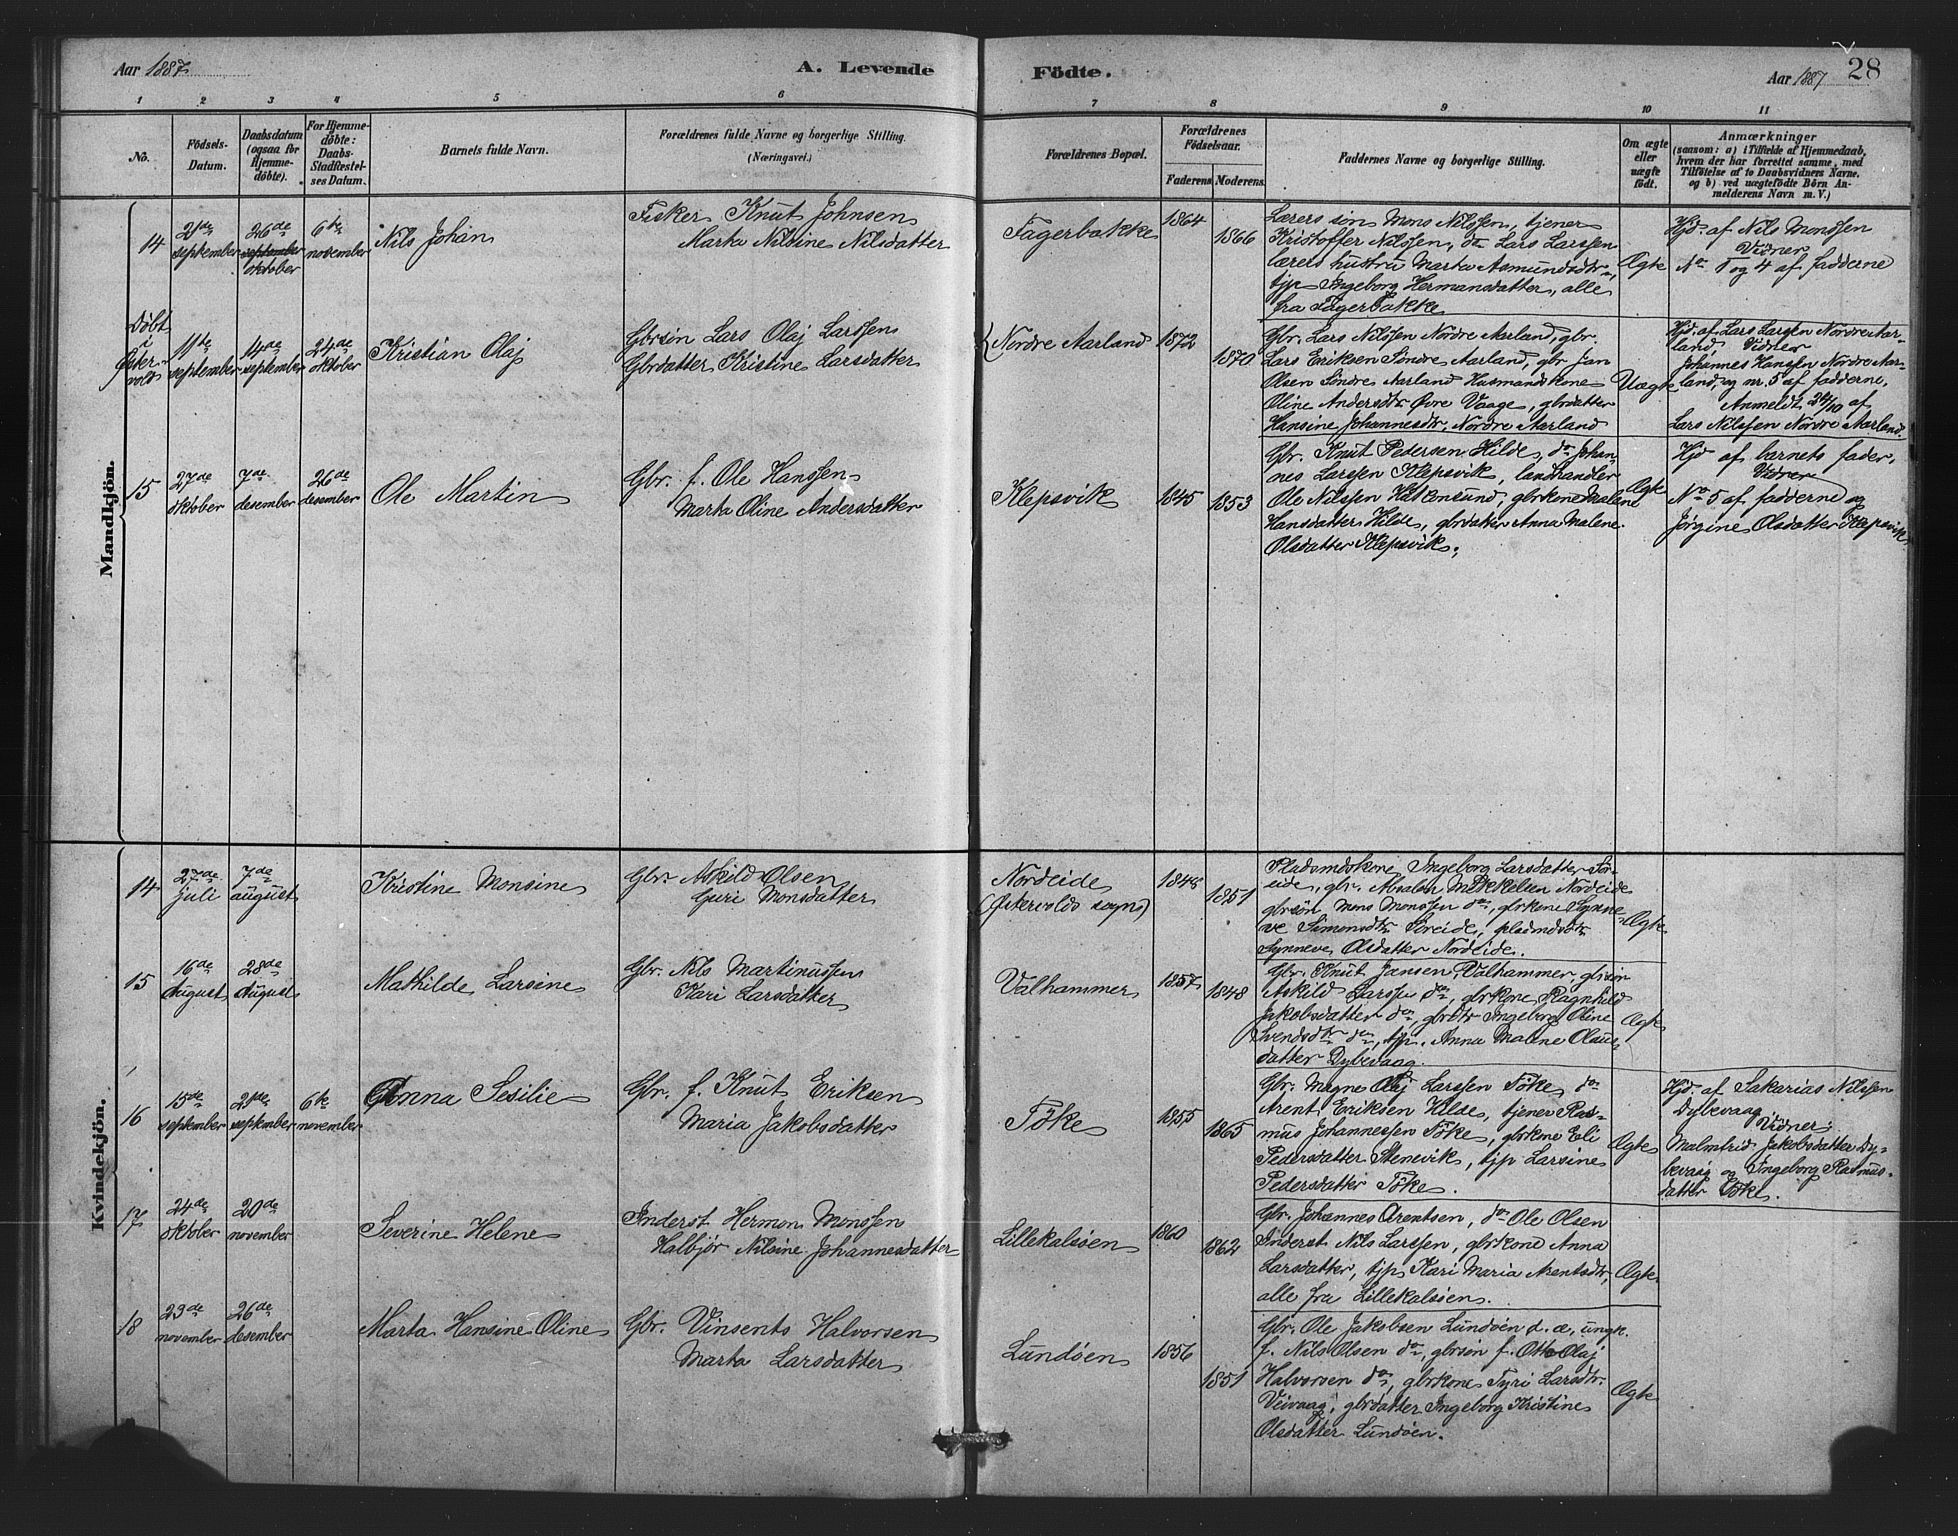 Aar 1887
A. Levende Födte.
Aar 1887 28
1 2 3 4 5 6 7 8 9 10 11
No.
Födsels-
Datum.
Daabsdatum
(ogsaa for
Hjemme-
döbte).
For Hjemme-
döbte:
Daabs-
Stadfæstel-
ses Datum.
Barnets fulde Navn.
Forældrenes fulde Navne og borgerlige Stilling.
(Næringsvei.)
Forældrenes Bopæl.
Forældrenes
Födselsaar.
Faderens. Moderens.
Faddernes Navne og borgerlige Stilling.
Om ægte
eller
uægte
födt.
Anmærkninger
(saasom: a) i Tilfælde af Hjemmedaab,
hvem der har forrettet samme, med
Tilföielse af to Daabsvidners Navne,
og b) ved uægtefödte Börn An-
melderens Navn m. V.)
Mandkjön.
14
21de
september
26de
september
oktober
6te
november
Nils Johan
Fisker Knut Johnsen
Marta Nilsine Nilsdatter
Fagerbakke
1864
1866
Lærers søn Mons Nilssen, tjener
Kristoffer Nilssen, do Lars Larssen
lærers hustru Marta Asmundsdtr,
tjp Ingeborg Hermansdatter, alle
fra Fagerbakke
Ægte
Hjd. af Nils Monssen
Vidner
No 1 og 4 af fadderne
Döbt
i
Øster-
vold
11de
september
14de
september
24de
oktober
Kristian Olaj
Gbrsøn Lars Olaj Larssen
Gbrdatter Kristine Larsdatter
Nordre Aarland
1872
1870
Gbr. Lars Nilssen Nordre Aarland, gbr.
Lars Eriksen Søndre Aarland, gbr Jan
Olsen Søndre Aarland Husmandskone
Oline Andersdtr Øvre Vaage, gbrdatter
Hansine Johannesdtr. Nordre Aarland
Uægte
Hjd. af Lars Larsen Nordre Aar-
land Vidner
Johannes Hanssen Nordre Aar-
land, og nr. 5 af fadderne.
Anmeldt 24/10 af
Lars Nilssen Nordre Aarland.
15
27de
oktober
7de
desember
26de
desember
Ole Martin
Gbr. f. Ole Hanssen
Marta Oline Andersdatter
Klepsvik
1845
1853
Gbr. Knut Pedersen Hilde, do Johan-
nes Larssen Klepsvik, landhandler
Ole Nilssen gbrkone Malene
Hansdatter Hilde, gbrdatter Anna Malene
Olsdatter Klepsvik.
Ægte
Hjd af barnets fader.
Vidner
No 5 af fadderne og
Jørgine Olsdatter Klepsvik
Kvindekjön.
14
27de
juli
7de
august
Kristine Monsine
Gbr. Askild Olsen
Guri Monsdatter
Nordeide
(Østervolds sogn)
1848
1851
Pladsmdskone Ingeborg Larsdatter Sør-
eide, gbr. Absalon Mikkelsen Nordeide
gbrsøn Mons Monssen do, gbrkone Synne-
ve Simonsdtr Søreide, pladsmdsdtr
Synneve Olsdatter Nordeide.
Ægte
15
16de
August
28de
August
Mathilde Larsine
Gbr. Nils Martinussen
Kari Larsdatter
Valhammer
1857
1848
Gbr. Knut Jansen, Valhammer gbrsøn
Askild Larssen do, gbrkone Ragnhild
Jakobsdatter do, gbrdtr Ingeborg Oline
Svendsdtr do, tjp. Anna Malene Olaus-
datter Dybevaag.
Ægte
16
15de
september
25de
september
6te
november
Anna Sesilie
Gbr. f. Knut Eriksen
Maria Jakobsdatter
Töke
1855
1865
Gbr. Magne Olaj Larssen Töke, do
Arent Eriksen Hilde, tjener Ras-
mus Johannessen Töke, gbrkone Eli
Pedersdatter Stenevik, tjp Larsine
Pedersdatter Töke.
Ægte
Hjd. af Sakarias Nilssen
Dybevaag
Vidner:
Malmfrid Jakobsdatter Dy-
bevaag og Ingeborg Rasmus-
datter Töke.
17
24de
oktober
20de
november
Severine Helene
Inderst Herman Monssen
Halbjør Nilsine Johannesdatter
Lillekalsöen
1860
1862
Gbr. Johannes Arentsen, do Ole Olsen
Inderst Nils Larssen, gbrkone Anna
Larsdatter, tjp Kari Maria Arentsdtr,
alle fra Lillekalsöen.
Ægte
18
23de
november
26de
desember
Marta Hansine Oline
Gbr. Vinsents Halvorsen
Marta Larsdatter
Lundöen
1856
1851
Gbr. Ole Jakobsen Lundöen d. æ, ungk.
f. Nils Olsen do, gbrsøn f. Otto Olaj
Halvorsen do, gbrkone Tyri Larsdtr
Veivaag, gbrdatter Ingeborg Kristine
Olsdatter Lundöen.
Ægte